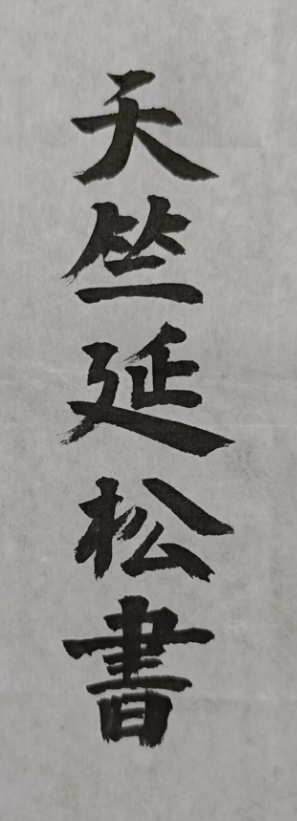 天竺延松書